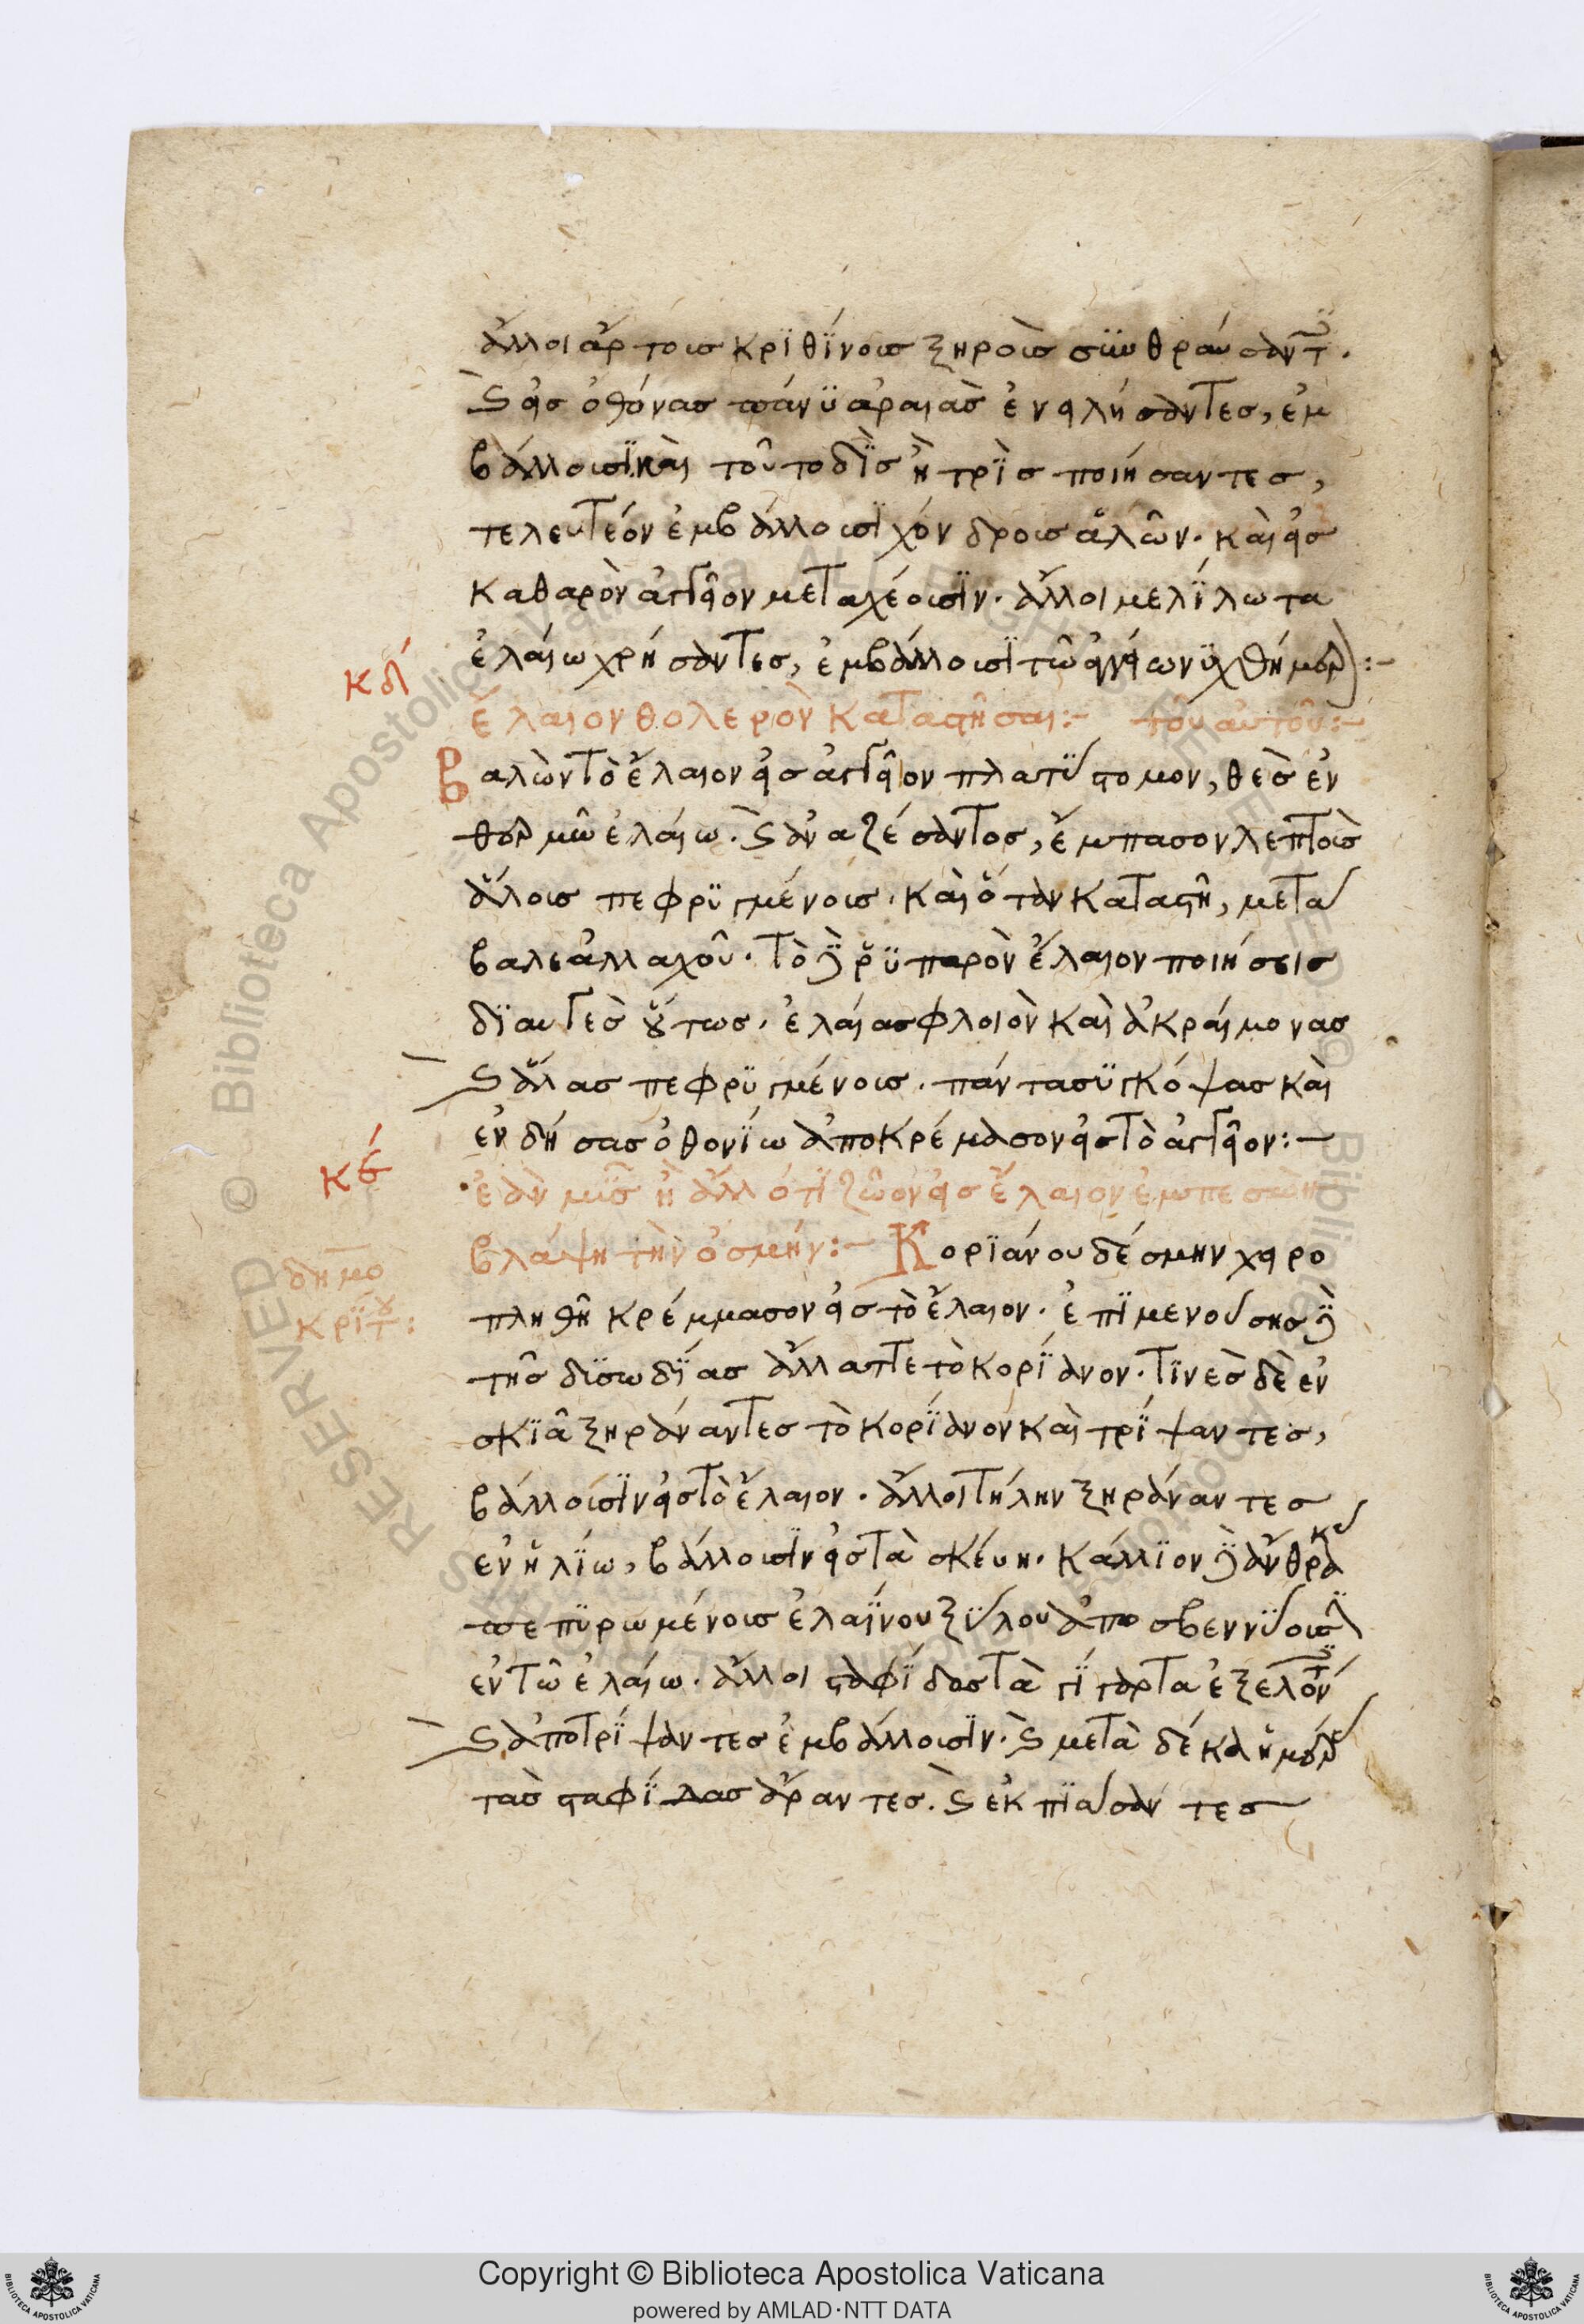 ἄλλοι ἄρτοις κρϊθΐνοις ξηροῖς σϋνθραύσαντ
καὶ εἰς ὀθόνας πάνϋ ἀραιὰς ἐνειλήσαντες, ἐμ
βάλλουσϊ. καὶ τοῦτο δῒς ἢ τρῒς ποιήσαντες,
τελευτέον ἐμβάλλουσϊ χόνδροις ἁλῶν. καὶ εἰς
καθαρὸν ἀγγεῖον μεταχέουσϊν. ἄλλοι μελΐλωτα
κδ
ἐλαίω χρήσαντες, ἐμβάλλουσϊ τῶ ἀγγείω νϋχθήμερ :-
ἔλαιον θολερὸν καταστῆσαι :- τοῦ αὐτοῦ :-
Βαλὼν τὸ ἔλαιον εἰς ἀγγεῖον πλατΰστομον, θὲς ἐν
θερμῶ ἐλαίω. καὶ ἀναζέσαντος, ἔμπασον λεπτοῖς
ἄλοις πεφρϋγμένοις. καὶ ὅταν καταστῆ, μετά
βαλε ἀλλαχοῦ. τὸ δὲ ῥϋπαρὸν ἔλαιον ποιήσεις
δϊαυγὲς οὕτως. ἐλαίας φλοιὸν καὶ ἀκραίμονας
καὶ ἅλας πεφρϋγμένοις. πάντα σϋγκόψας καὶ
ἐνδήσας ὀθονΐω ἀποκρέμασον εἰς τὸ ἀγγεῖον :-
κε
ἐὰν μῦς ἢ ἄλλό τϊ ζῶον εἰς ἔλαιον ἐμπεσὼν
βλάψη τὴν ὀσμήν :- Κορϊάνου δέσμην χειρο
δημο
κρΐτου :
πληθῆ κρέμμασον εἰς τὸ ἔλαιον. ἐπϊμενούσης δὲ
τῆς δϊσωδΐας ἄλλαττε τὸ κορΐανον. τϊνὲς δὲ ἐν
σκϊᾶ ξηράναντες τὸ κορΐανόν καὶ τρΐψαντες,
βάλλουσϊν εἰς τὸ ἔλαιον. ἄλλοι τήλην ξηράναντες
ἐν ἡλΐω, βάλλουσϊν εἰς τὰ σκέυη. κάλλϊον δὲ ἄνθρακ
πεπϋρωμένοις ἐλαΐνου ξΰλου ἀποσβεννΰουσϊν
ἐν τῶ ἐλαίω. ἄλλοι σταφΐδας τὰ γΐγαρτα ἐξελόντ
καὶ ἀποτρΐψαντες ἐμβάλλουσϊν. καὶ μετὰ δέκα ἡμέρ
τὰς σταφΐδας ἄραντες. καὶ ἐκπϊάσαντες
Copyright © Biblioteca Apostolica Vaticana
powered by AMLAD·NTT DATA